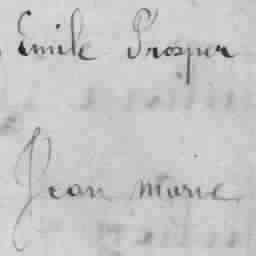 Emile Prosper
Jean marie